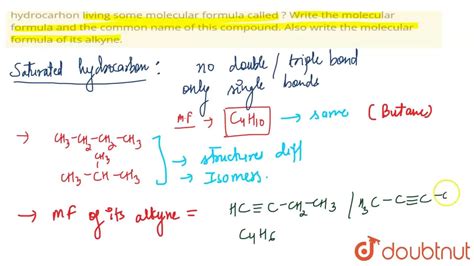 hydrocarhon living some molecular formula called ? Write the molecular
formula and the common name of this compound. Also write the molecular
formula of its alkyne.
Saturated hydrocarbon : no double / triple bond
only single bonds
MF → C4H10 → same (Butane)
→ CH3-CH2-CH2-CH3
CH3
CH3-CH-CH3
→ structure diff
→ Isomers.
→ MF of its alkyne = HC≡C-CH2-CH3 / H3C-C≡C-C
C4H6
doubtnut